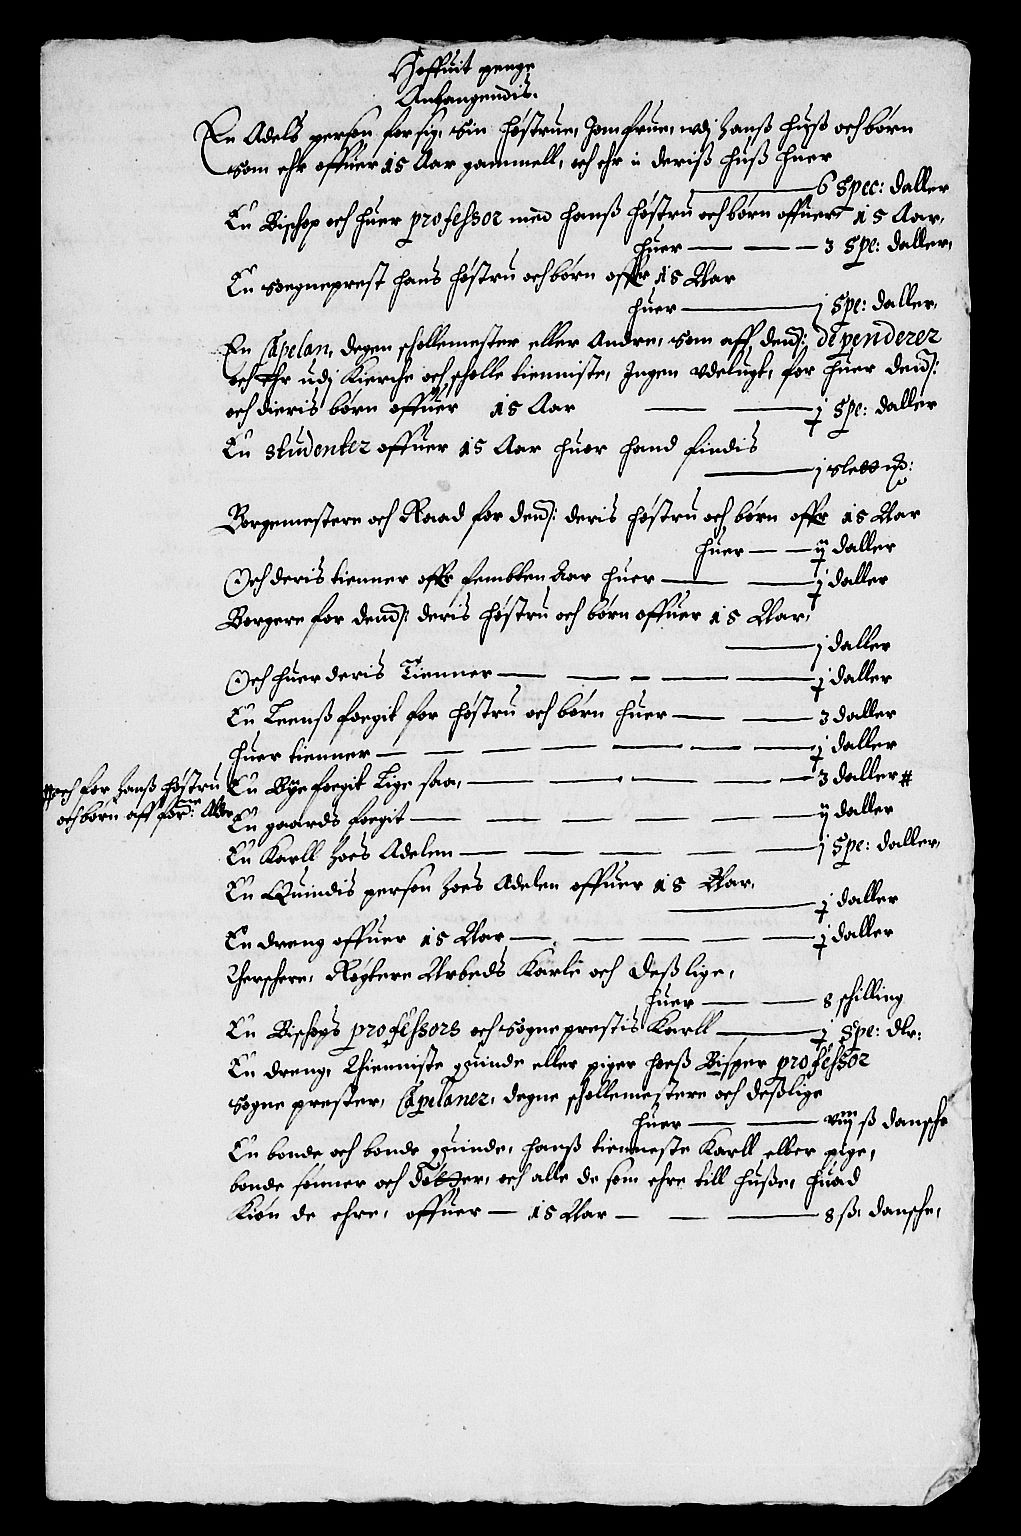 Hoffuit penge
Anlangendis.
En Adels person for sig, Sin Høstrue, Jomfrue, udj hanß huß och børn
som ehr offuer 15 Aar gammell, och ehr i deriß huß huer
6 Spec: daller
En Bischop och huer professor med hanß høstru och børn offuer 15 Aar,
huer — — 3 Spe: daller,
En Sogneprest hans høstru och børn offr 15 Aar
huer — j Spe: daller,
En Capelan, degen schollemester eller Andre, som aff dend: dependerer
och Ehr udj Kierche och scholle tienniste, Ingen vdelugt, for huer dend:
och dieris børn offuer 15 Aar — — j Spe: daller
En studenter offuer 15 Aar huor hand findis
— j slett
Borgemestere och Raad for dend: deris høstru och børn offr 15 Aar
huer — — ij daller
Och deris tienner offr fembten Aar huer — — j daller
Borgere for dend: deris høstru och børn offuer 15 Aar,
— j daller
Och huer deris Tienner — — — — j daller
En Leenß foegit for høstru och børn huer — — 3 daller
huer tienner — — — — — — — j daller
En Bye foegit Lige saa, — — — — 3 daller #
# och for hanß høstru
och børn aff forne: Alder
En gaards foegit — — — — — — ij daller
En Karll hoes Adelen — — — — — j Spe: daller,
En Quindis person hoes Adelen offuer 15 Aar,
— j daller
En dreng offuer 15 Aar — — — — — j daller
Therschere, Røgtere Arbeds Karle och deßlige,
huer — — 8 schilling
En Bischops professors och Sogneprestis Karll — j Spe: dlr:
En dreng, Thienniste quinde eller piger hoeß Bisper professor
Sogne prester, Capelaner, degne schollemestere och deßlige
huer — — viij ß dansche
En bonde och bonde quinde, hanß tienneste Karll eller pige,
bonde sønner och Døtter, och alle de som ehre till huße, huad
Kiøn de ehre, offuer — 15 Aar — — — 8 ß. dansche,